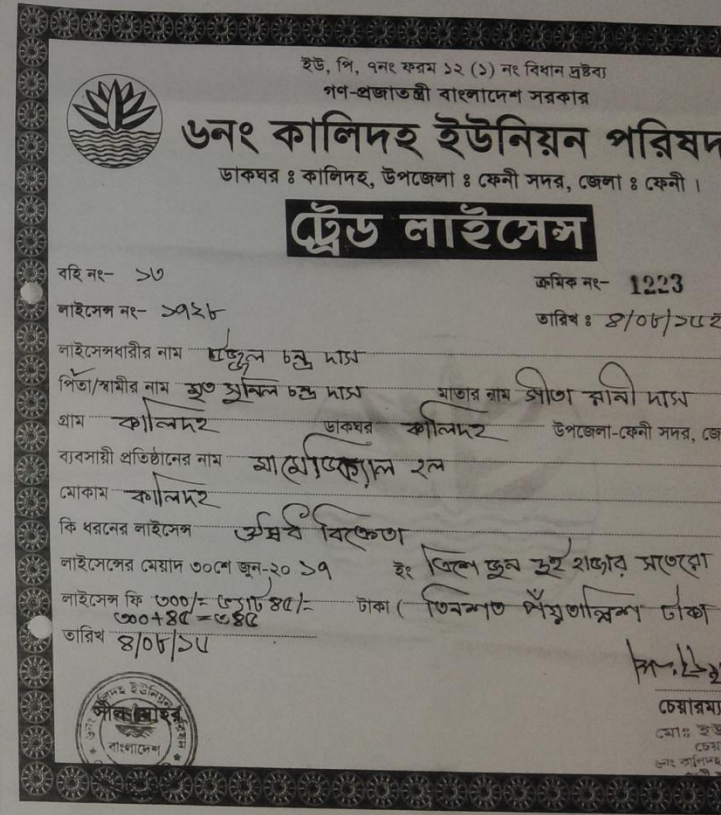 ইউ, পি, ৭নং ফরম ১২ (১) নং বিধান দ্রষ্টব্য
গণ-প্রজাতন্ত্রী বাংলাদেশ সরকার
৬নং কালিদহ ইউনিয়ন পরিষদ
ডাকঘর ঃ কালিদহ, উপজেলা ঃ ফেনী সদর, জেলা ঃ ফেনী।
ট্রেড লাইসেন্স
বহি নং- ১৩
ক্রমিক নং- 1223
লাইসেন্স নং- ১৭২৮
তারিখ ঃ ৪/০৮/১৫
লাইসেন্সধারীর নাম চন্দ্র দাস
পিতা/স্বামীর নাম মৃত সুনিল চন্দ্র দাস মাতার নাম রানী দাস
গ্রাম কালিদহ ডাকঘর কালিদহ উপজেলা-ফেনী সদর, জে
ব্যবসায়ী প্রতিষ্ঠানের নাম হল
মোকাম কালিদহ
কি ধরনের লাইসেন্স ঔষধ বিক্রেতা
লাইসেন্সের মেয়াদ ৩০শে জুন-২০ ১৭ ইং ত্রিশে জুন দুই হাজার সতেরো
লাইসেন্স ফি ৩০০/= ভ্যাট ৪৫/= টাকা ( তিনশত পঁয়তাল্লিশ টাকা
৩০০+৪৫ = ৩৪৫
তারিখ ৪/০৮/১৫
চেয়ারম্যা
মোঃ ইউ
চেয়া
৬নং কালিদহ
সীল মোহর
বাংলাদেশ